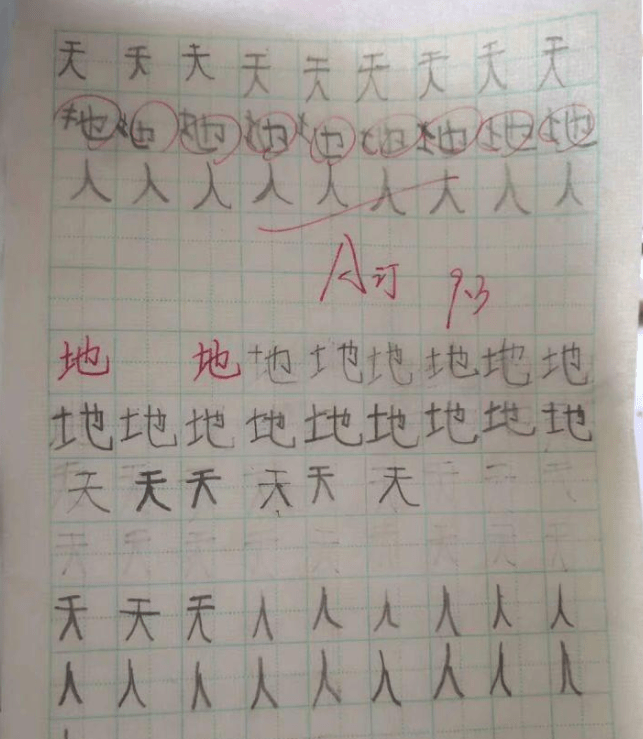 天天天天天天天天天
地地地地地地地地地
人人人人人人人人人
A订 9.3
地地地地地地地地
地地地地地地地地地
天天天天天天
天天天人人人人人人
人人人人人人人人人